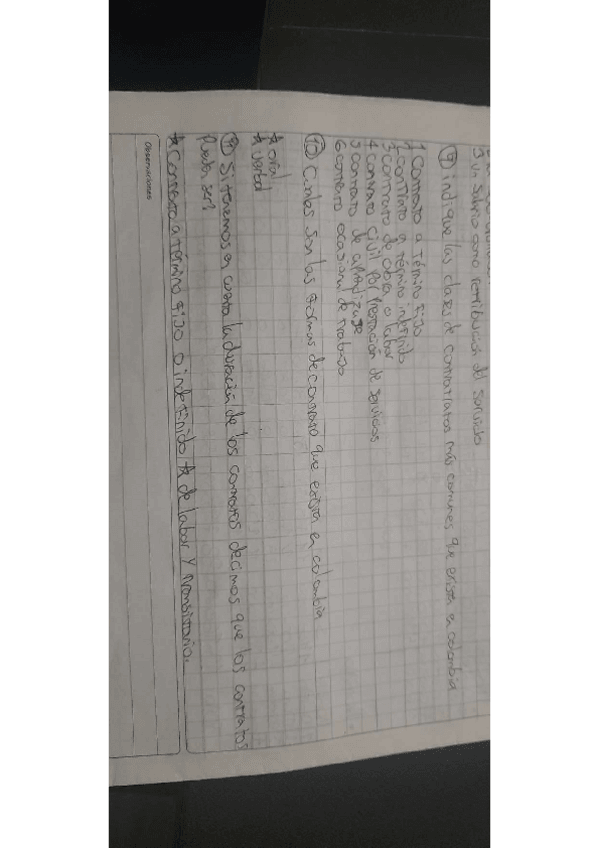 3 un salario como retribución del servicio
⑨ indique las clases de contratratos más comunes que existen en colombia
1 contrato a término fijo
2 contrato a término indefinido
3 contrato de obra o labor
4 contrato civil por prestación de servicios
5 contrato de aprendizaje
6 contrato ocasional de trabajo
⑩ Cuales son las formas de contrato que existen en colombia
* oral
* verbal
⑪ Si tenemos en cuenta la duración de los contratos decimos que los contratos
pueden ser?
* Contrato a término fijo o indefinido * de labor y transitorio.
Observaciones